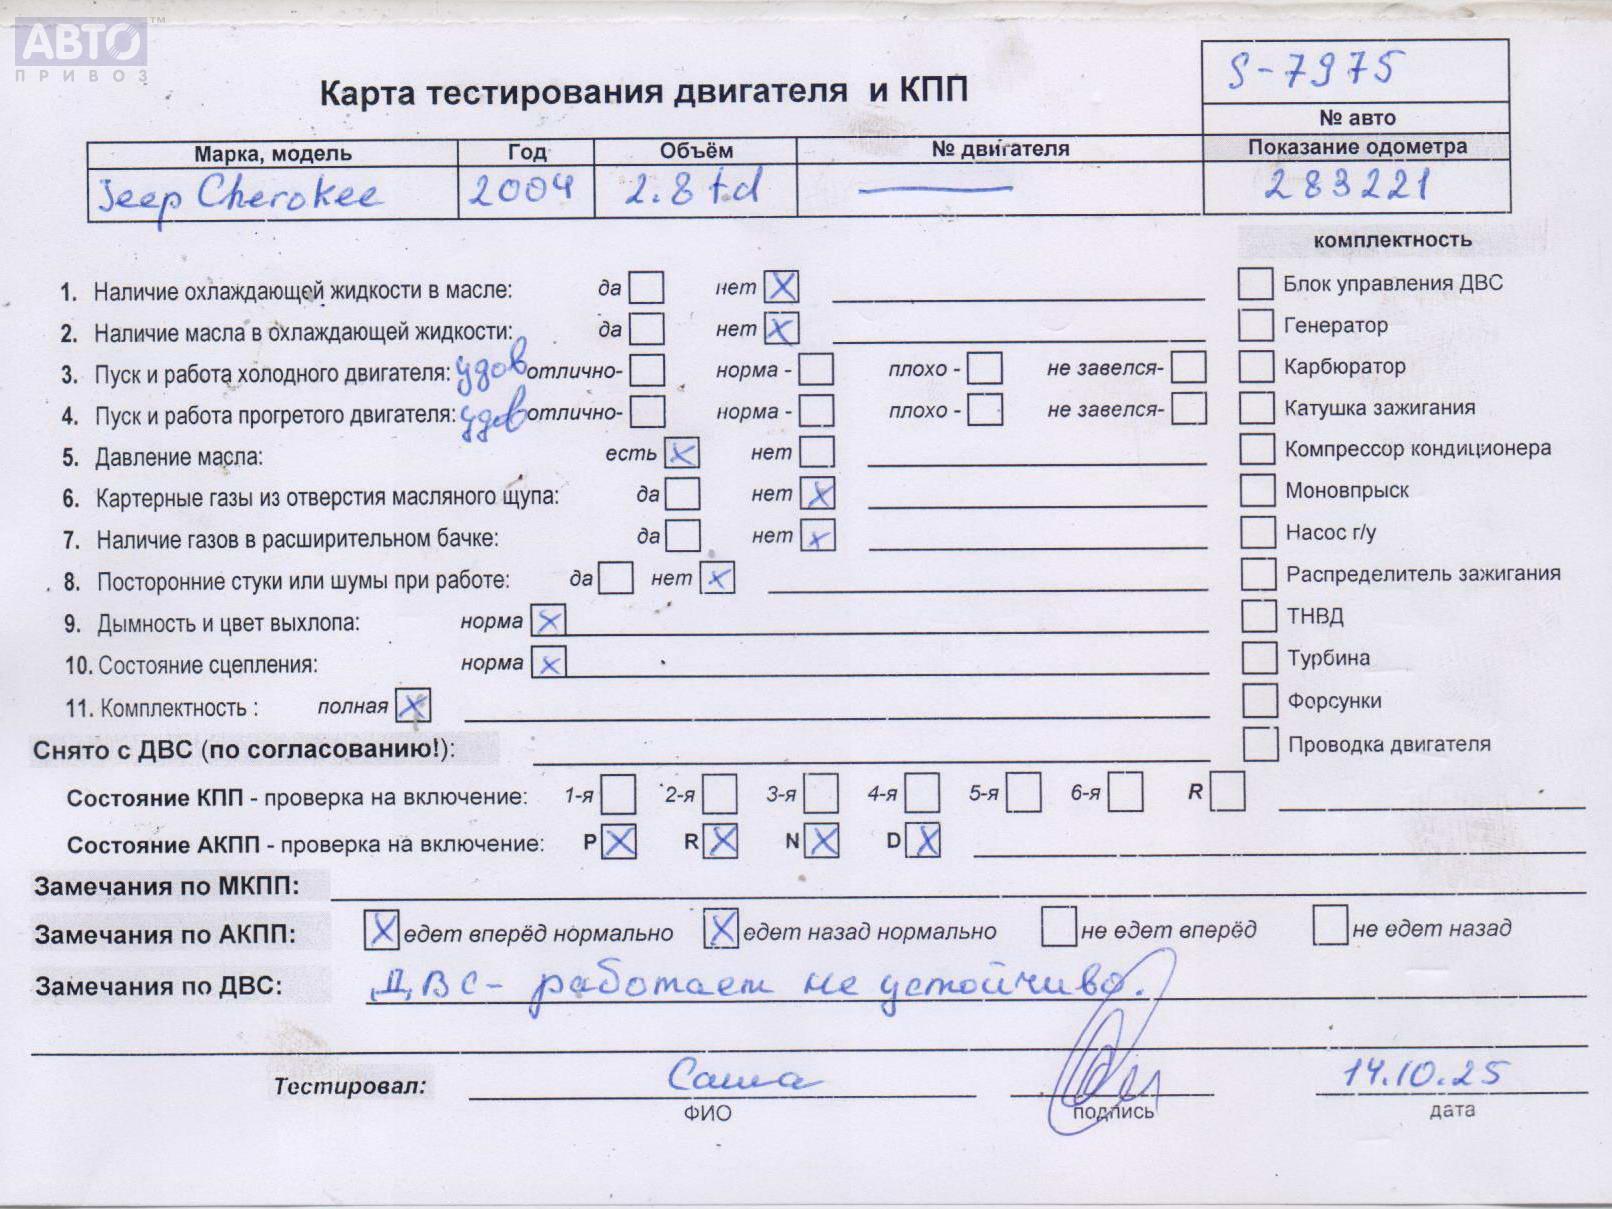 АВТО ™
ПРИВОЗ
S-7975
Карта тестирования двигателя и КПП
№ авто
Марка, модель Год Объём № двигателя Показание одометра
Jeep Cherokee 2004 2.8 td 283221
комплектность
1. Наличие охлаждающей жидкости в масле: да нет X Блок управления ДВС
2. Наличие масла в охлаждающей жидкости: да нет X Генератор
3. Пуск и работа холодного двигателя: удов отлично- норма - плохо - не завелся- Карбюратор
4. Пуск и работа прогретого двигателя: удов отлично- норма - плохо - не завелся- Катушка зажигания
5. Давление масла: есть X нет Компрессор кондиционера
6. Картерные газы из отверстия масляного щупа: да нет X Моновпрыск
7. Наличие газов в расширительном бачке: да нет X Насос г/у
8. Посторонние стуки или шумы при работе: да нет X Распределитель зажигания
9. Дымность и цвет выхлопа: норма X ТНВД
10. Состояние сцепления: норма X Турбина
11. Комплектность : полная X Форсунки
Снято с ДВС (по согласованию!): Проводка двигателя
Состояние КПП - проверка на включение: 1-я 2-я 3-я 4-я 5-я 6-я R
Состояние АКПП - проверка на включение: P X R X N X D X
Замечания по МКПП:
Замечания по АКПП: X едет вперёд нормально X едет назад нормально не едет вперёд не едет назад
Замечания по ДВС: ДВС - работает не устойчиво.
Тестировал: Саша 14.10.25
ФИО подпись дата